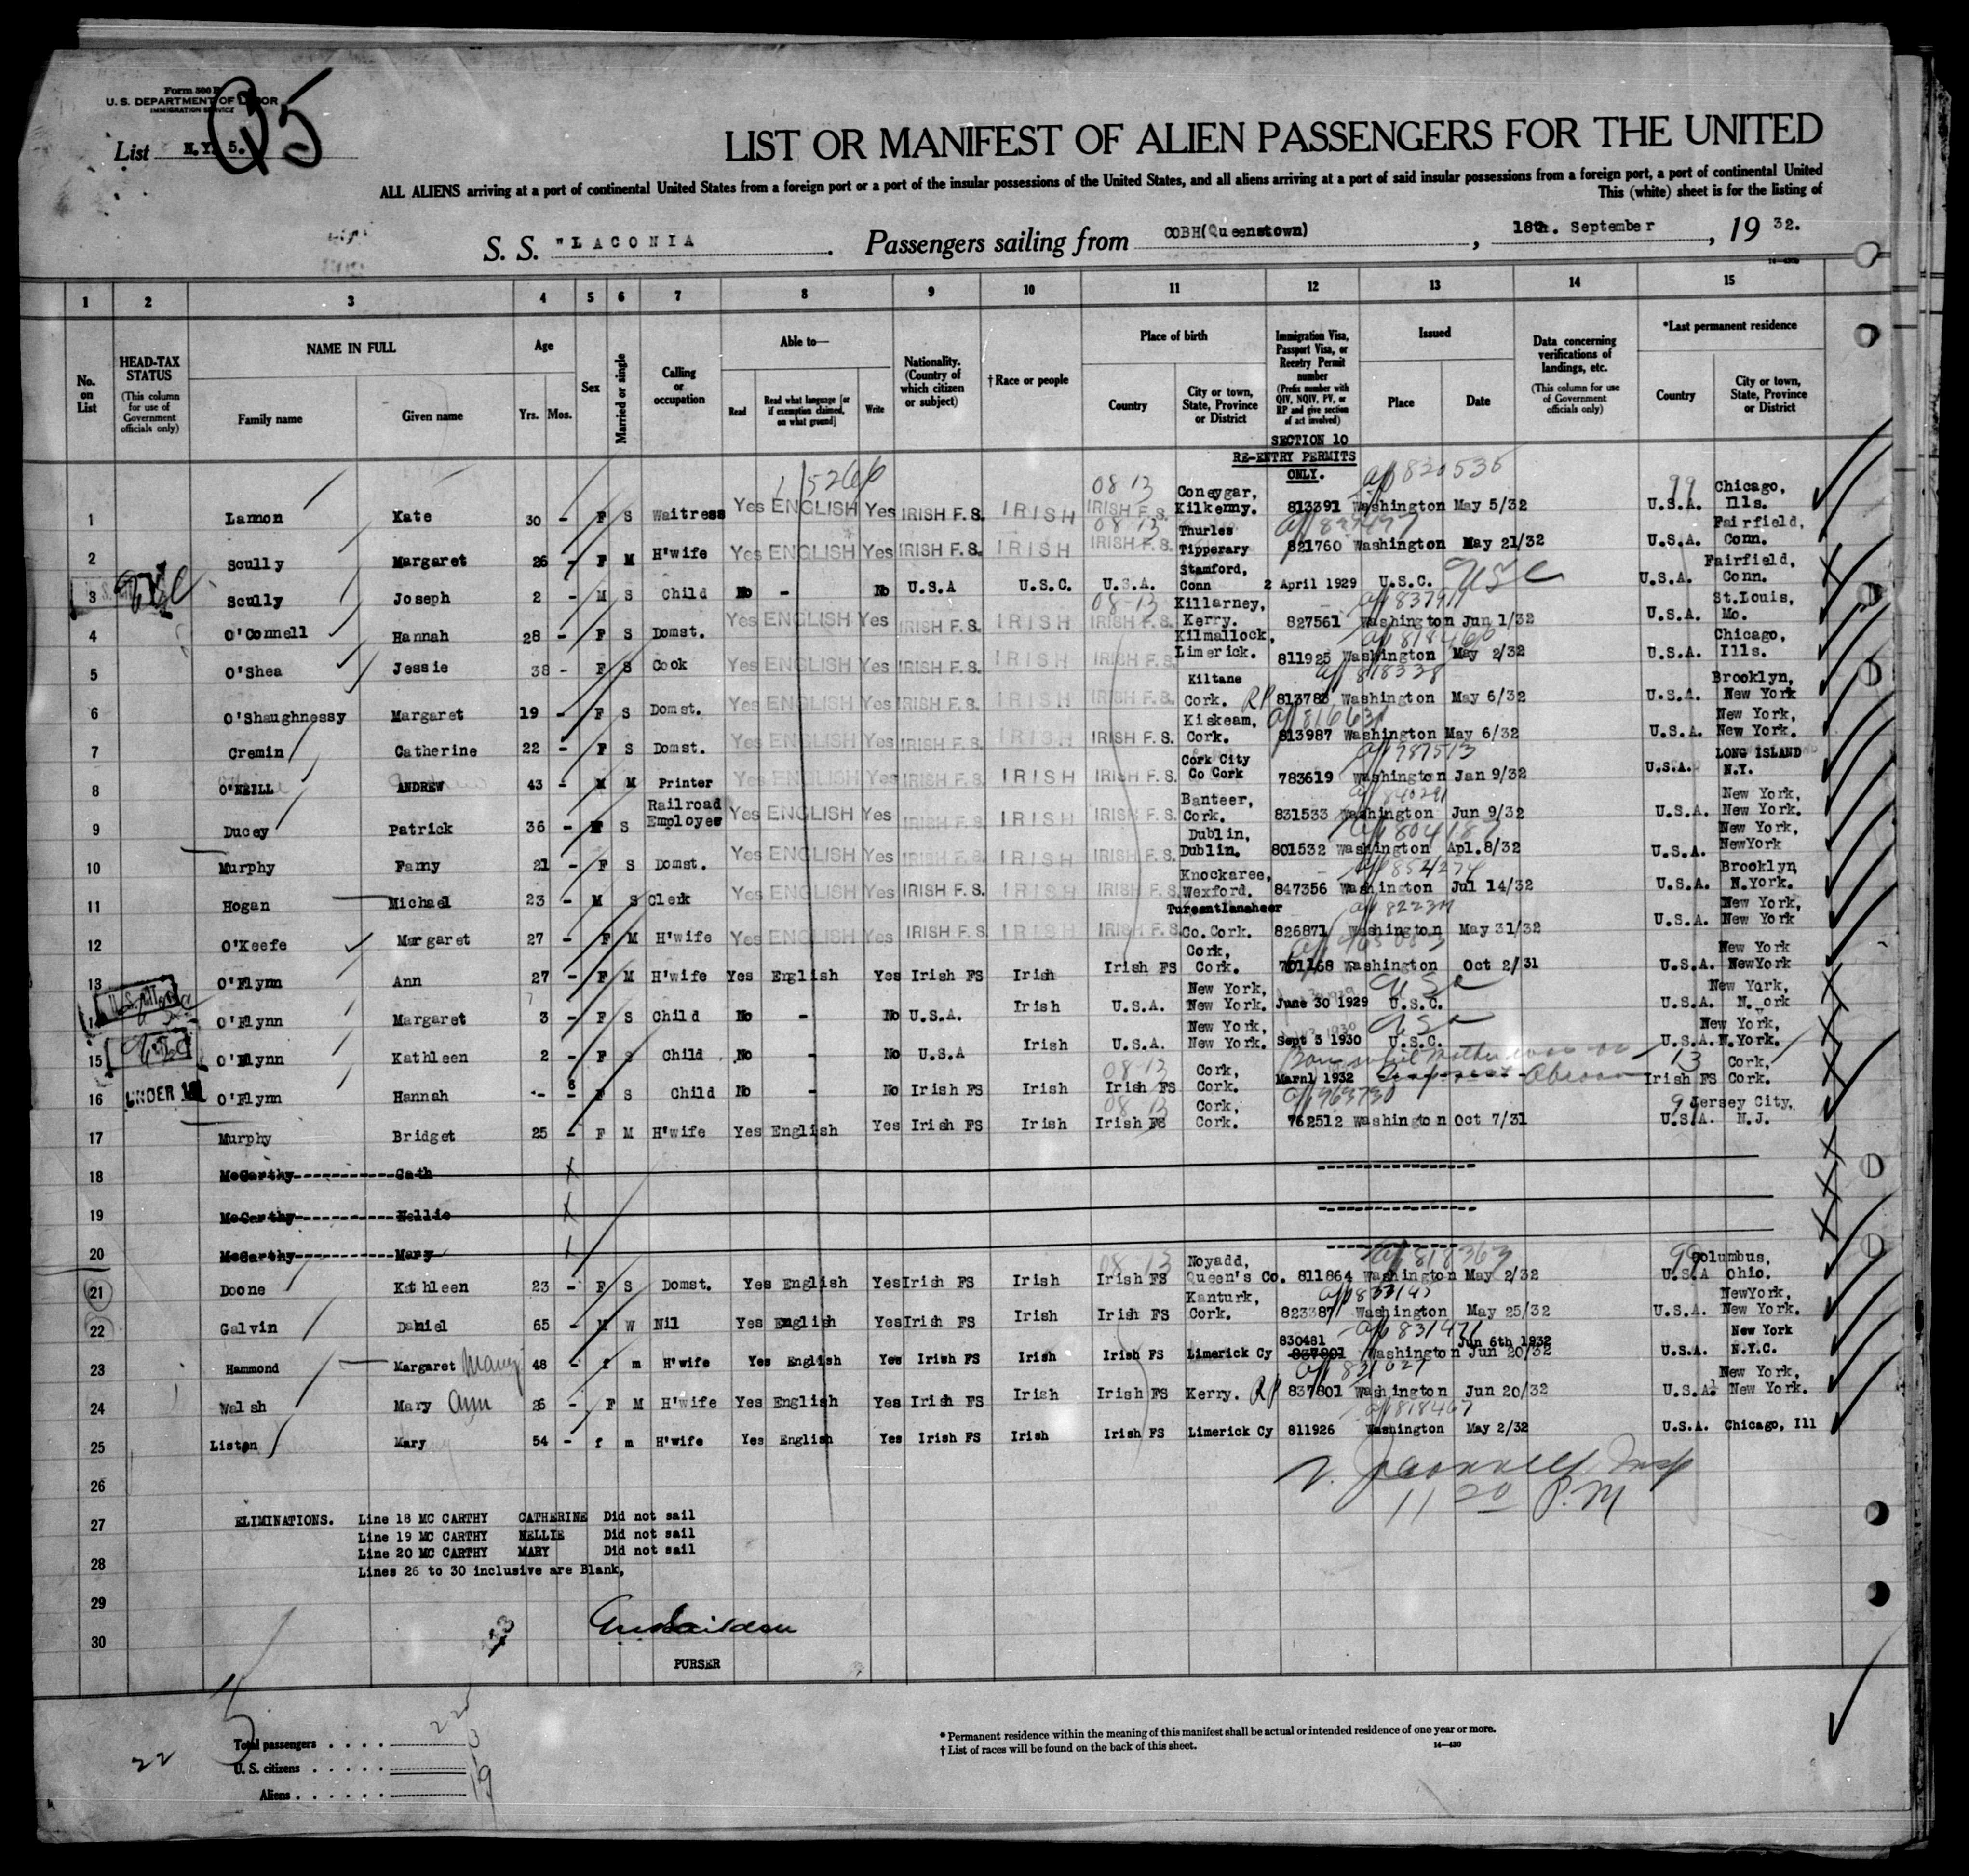 Form 500 B
U. S. DEPARTMENT OF LABOR
IMMIGRATION SERVICE
List N.Y. 5.
Q5
LIST OR MANIFEST OF ALIEN PASSENGERS FOR THE UNITED
ALL ALIENS arriving at a port of continental United States from a foreign port or a port of the insular possessions of the United States, and all aliens arriving at a port of said insular possessions from a foreign port, a port of continental United
This (white) sheet is for the listing of
S. S. "LACONIA . Passengers sailing from COBH(Queenstown) , 18th. September , 19 32.
1 2 3 4 5 6 7 8 9 10 11 12 13 14 15
No. on List
HEAD-TAX STATUS
(This column for use of Government officials only)
NAME IN FULL
Family name Given name
Age
Yrs. Mos.
Sex
Married or single
Calling or occupation
Able to—
Read Read what language [or if exemption claimed, on what ground] Write
Nationality. (Country of which citizen or subject)
† Race or people
Place of birth
Country City or town, State, Province or District
Immigration Visa, Passport Visa, or Reentry Permit number
(Prefix number with QIV, NQIV, PV, or RP and give section of act involved)
Issued
Place Date
Data concerning verifications of landings, etc.
(This column for use of Government officials only)
*Last permanent residence
Country City or town, State, Province or District
SECTION 10
RE-ENTRY PERMITS
ONLY.
1 Lamon Kate 30 - F S Waitress Yes ENGLISH Yes IRISH F.S. IRISH IRISH F.S. Coneygar, Kilkenny. 813391 Washington May 5/32 U.S.A. Chicago, Ills.
2 Scully Margaret 26 - F M H'wife Yes ENGLISH Yes IRISH F.S. IRISH IRISH F.S. Thurles Tipperary 821760 Washington May 21/32 U.S.A. Fairfield, Conn.
3 Scully Joseph 2 - M S Child No - No U.S.A U.S.C. U.S.A. Stamford, Conn 2 April 1929 U.S.C. USC U.S.A. Fairfield, Conn.
4 O'Connell Hannah 28 - F S Domst. Yes ENGLISH Yes IRISH F.S. IRISH IRISH F.S. Killarney, Kerry. 827561 Washington Jun 1/32 U.S.A. St.Louis, Mo.
5 O'Shea Jessie 38 - F S Cook Yes ENGLISH Yes IRISH F.S. IRISH IRISH F.S. Kilmallock, Limerick. 811925 Washington May 2/32 U.S.A. Chicago, Ills.
6 O'Shaughnessy Margaret 19 - F S Domst. Yes ENGLISH Yes IRISH F.S. IRISH IRISH F.S. Kiltane Cork. RP 813783 Washington May 6/32 U.S.A. Brooklyn, New York
7 Cremin Catherine 22 - F S Domst. Yes ENGLISH Yes IRISH F.S. IRISH IRISH F.S. Kiskeam, Cork. 813987 Washington May 6/32 U.S.A. New York, New York.
8 O'NEILL ANDREW 43 - M M Printer Yes ENGLISH Yes IRISH F.S. IRISH IRISH F.S. Cork City Co Cork 783619 Washington Jan 9/32 U.S.A. LONG ISLAND N.Y.
9 Ducey Patrick 36 - M S Railroad Employee Yes ENGLISH Yes IRISH F.S. IRISH IRISH F.S. Banteer, Cork. 831533 Washington Jun 9/32 U.S.A. New York, New York.
10 Murphy Fanny 21 - F S Domst. Yes ENGLISH Yes IRISH F.S. IRISH IRISH F.S. Dublin, Dublin. 801532 Washington Apl.8/32 U.S.A. New York, NewYork
11 Hogan Michael 23 - M S Clerk Yes ENGLISH Yes IRISH F.S. IRISH IRISH F.S. Knockaree, Wexford. 847356 Washington Jul 14/32 U.S.A. Brooklyn N.York.
12 O'Keefe Margaret 27 - F M H'wife Yes ENGLISH Yes IRISH F.S. IRISH IRISH F.S. Co.Cork. 826871 Washington May 31/32 U.S.A. New York, New York
13 O'Flynn Ann 27 - F M H'wife Yes English Yes Irish FS Irish Irish FS Cork, Cork. 701168 Washington Oct 2/31 U.S.A. New York NewYork
14 O'Flynn Margaret 3 - F S Child No - No U.S.A. Irish U.S.A. New York, New York. June 30 1929 U.S.C. U.S.A. New York, N. ork
15 O'Flynn Kathleen 2 - F S Child No - No U.S.A Irish U.S.A. New York, New York. Sept 3 1930 U.S.C. U.S.A. New York, N.York.
16 UNDER 16 O'Flynn Hannah -- 6 F S Child No - No Irish FS Irish Irish FS Cork, Cork. Marn1 1932 Born while Mother was on Abroad Irish FS Cork, Cork.
17 Murphy Bridget 25 - F M H'wife Yes English Yes Irish FS Irish Irish FS Cork, Cork. 762512 Washington Oct 7/31 U.S.A. Jersey City. N.J.
18 McCarthy Cath
19 McCarthy Nellie
20 McCarthy Mary
21 Doone Kathleen 23 - F S Domst. Yes English Yes Irish FS Irish Irish FS Noyadd, Queen's Co. 811864 Washington May 2/32 U.S.A Columbus, Ohio.
22 Galvin Daniel 65 - M W Nil Yes English Yes Irish FS Irish Irish FS Kanturk, Cork. 823387 Washington May 25/32 U.S.A. NewYork, New York.
23 Hammond Margaret Mary 48 - f m H'wife Yes English Yes Irish FS Irish Irish FS Limerick Cy 830481 837801 Washington Jun 6th 1932 Jun 20/32 U.S.A. New York N.Y.C.
24 Walsh Mary Ann 26 - F M H'wife Yes English Yes Irish FS Irish Irish FS Kerry. RP 837801 Washington Jun 20/32 U.S.A. New York, New York.
25 Liston Mary 54 - f m H'wife Yes English Yes Irish FS Irish Irish FS Limerick Cy 811926 Washington May 2/32 U.S.A. Chicago, Ill
26
11 20 P.M
27 ELIMINATIONS. Line 18 MC CARTHY CATHERINE Did not sail
Line 19 MC CARTHY NELLIE Did not sail
Line 20 MC CARTHY MARY Did not sail
28 Lines 26 to 30 inclusive are Blank,
29
30
PURSER
Total passengers . . . . 22
U. S. citizens . . . . .
Aliens . . . . . . 19
22
* Permanent residence within the meaning of this manifest shall be actual or intended residence of one year or more.
† List of races will be found on the back of this sheet.
14—430